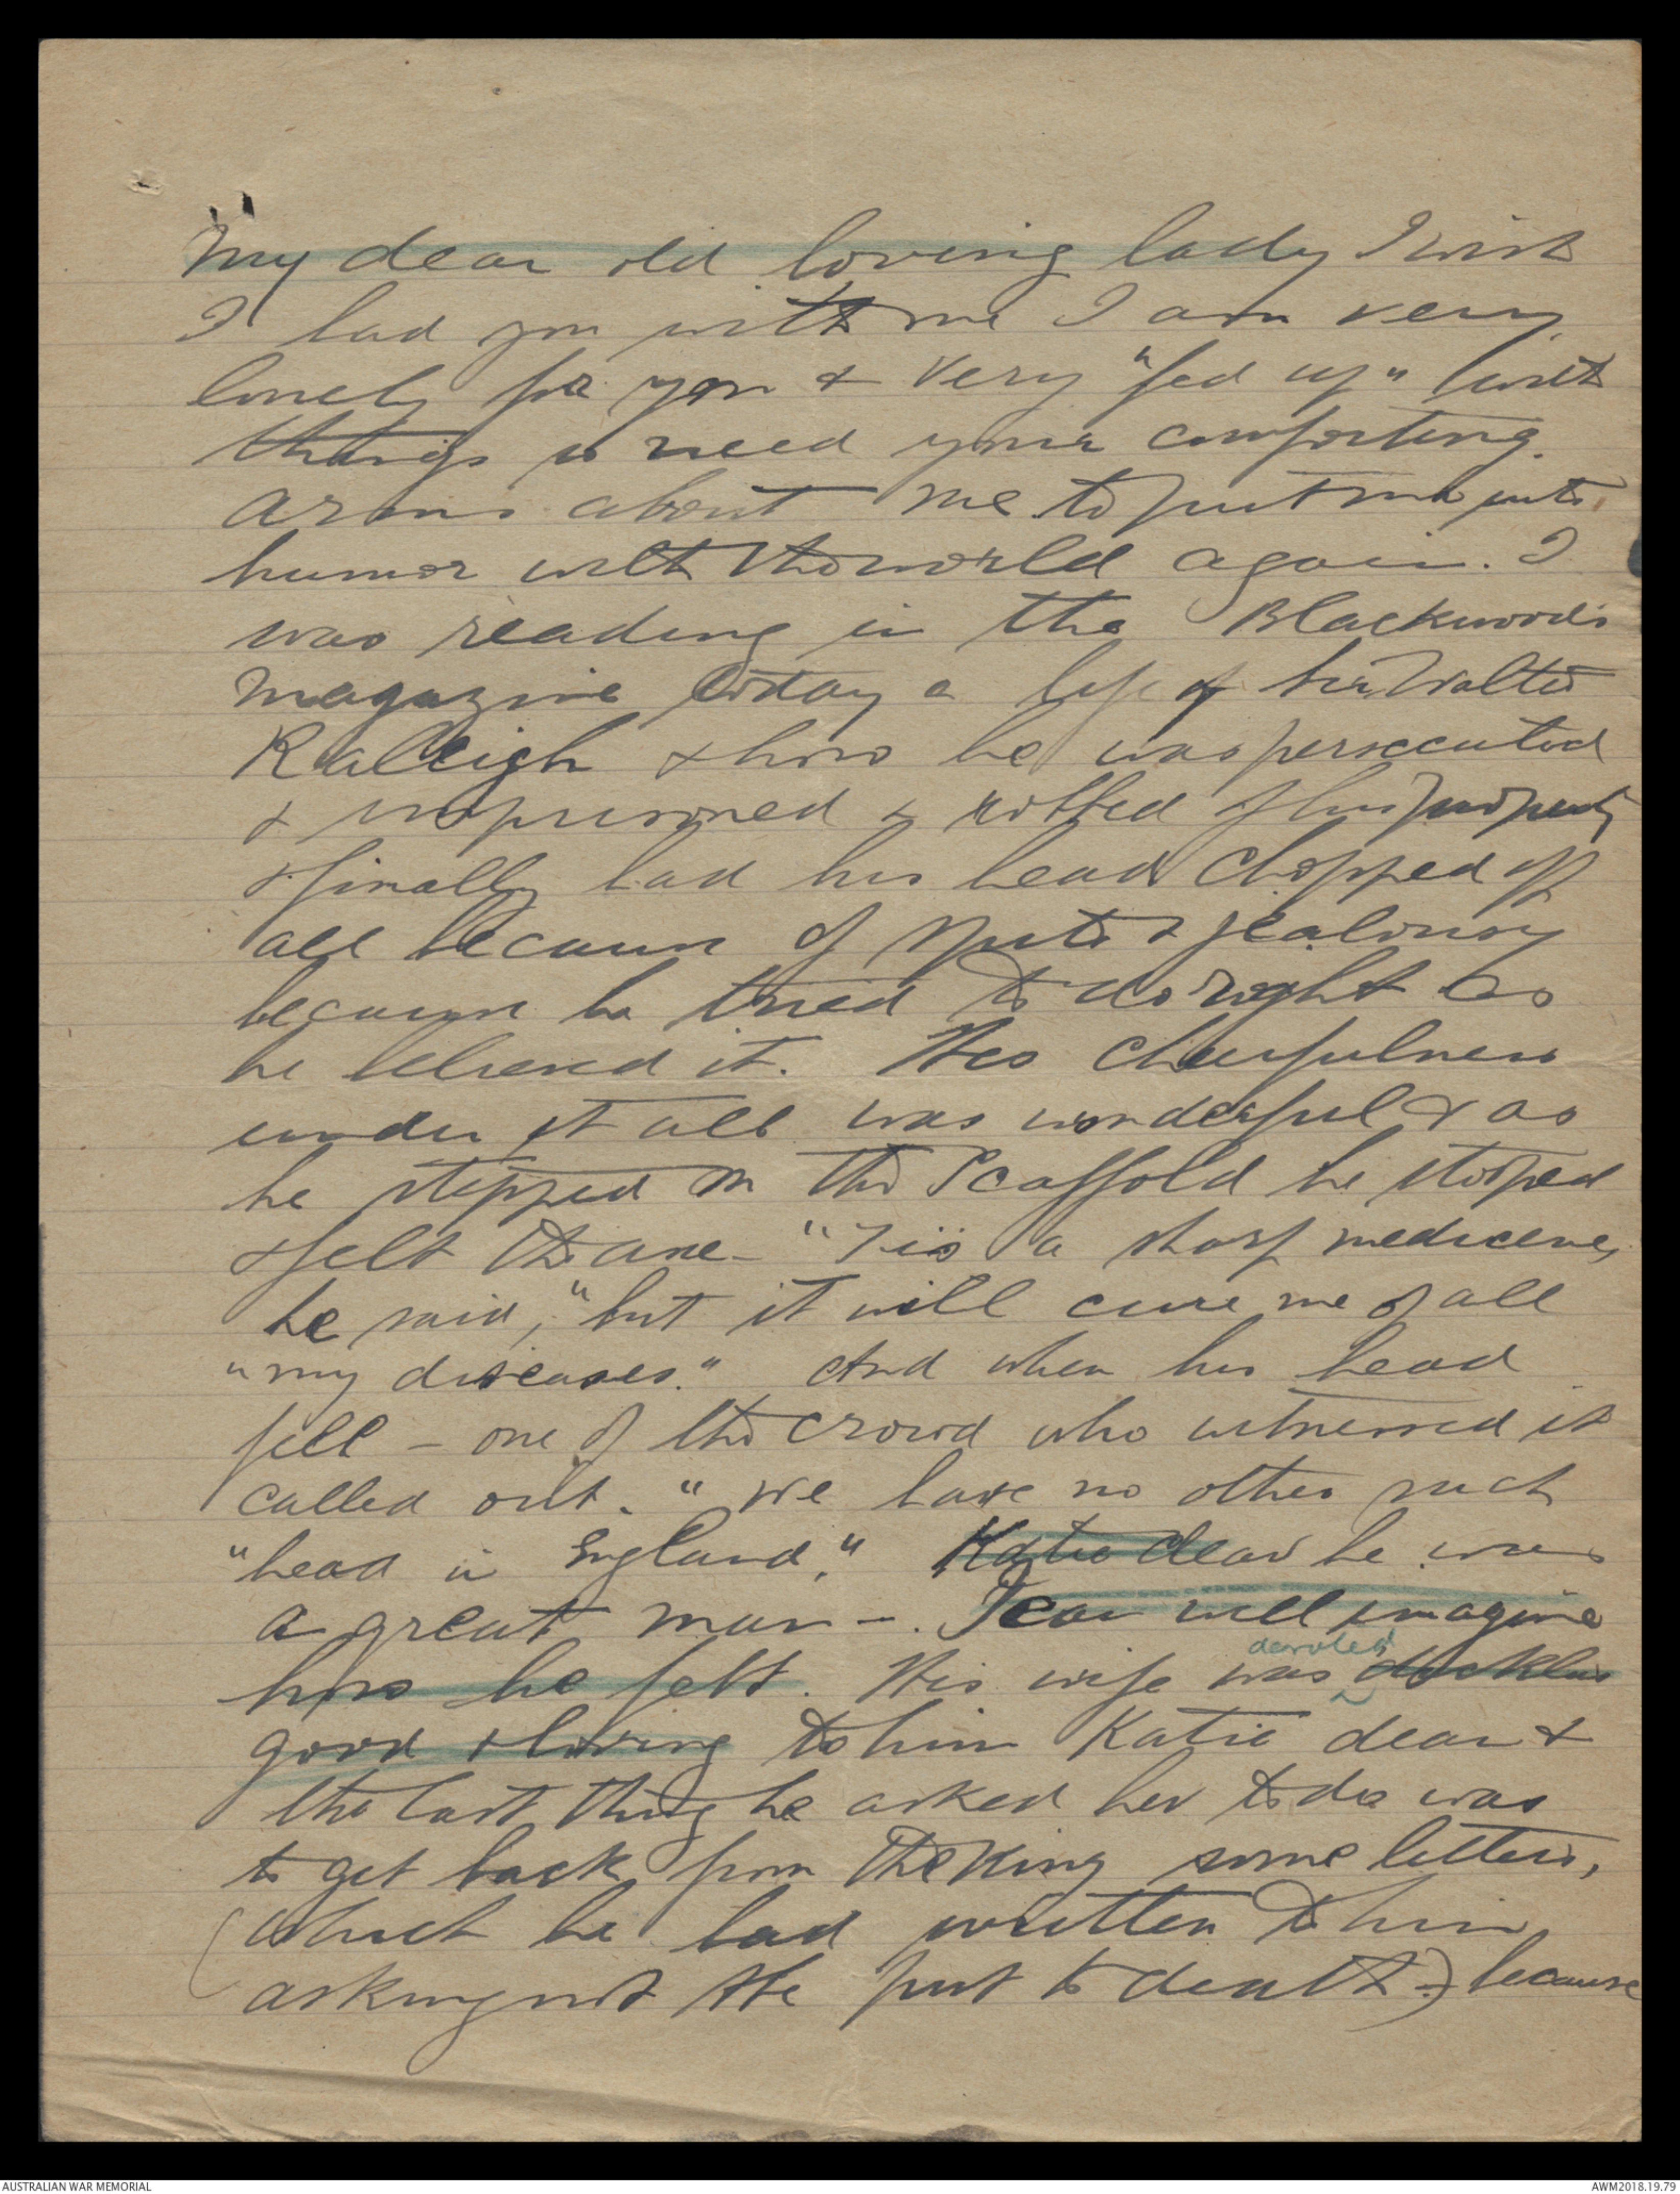 My dear old loving lady I wish
I had you with me I am very
lonely for you & very "fed up" with
things & need your comforting
arms about me to put me into
humor with the world again. I
was reading in the Blackwoods
Magazine today a life of Sir Walter
Raleigh & how he was persecuted
& imprisoned & robbed of his property
& finally had his head chopped off
all because of spite & jealousy
because he tried to do right as
he believed it. His cheerfulness
under it all was wonderful & as
he stepped on the Scaffold he stooped
& felt the axe - "Tis a sharp medicene,
he said, "but it will cure me of all
"my diseases." And when his head
fell - one of the crowd who witnessed it
called out. "We have no other such
"head in England." Katie dear he was
a great man -. I can well imagine
how he felt. His wife was devoted
good & loving to him Katie dear &
the last thing he asked her to do was
to get back from the King some letters,
(which he had written to him
asking not to be put to death -) because
AUSTRALIAN WAR MEMORIAL
AWM2018.19.79